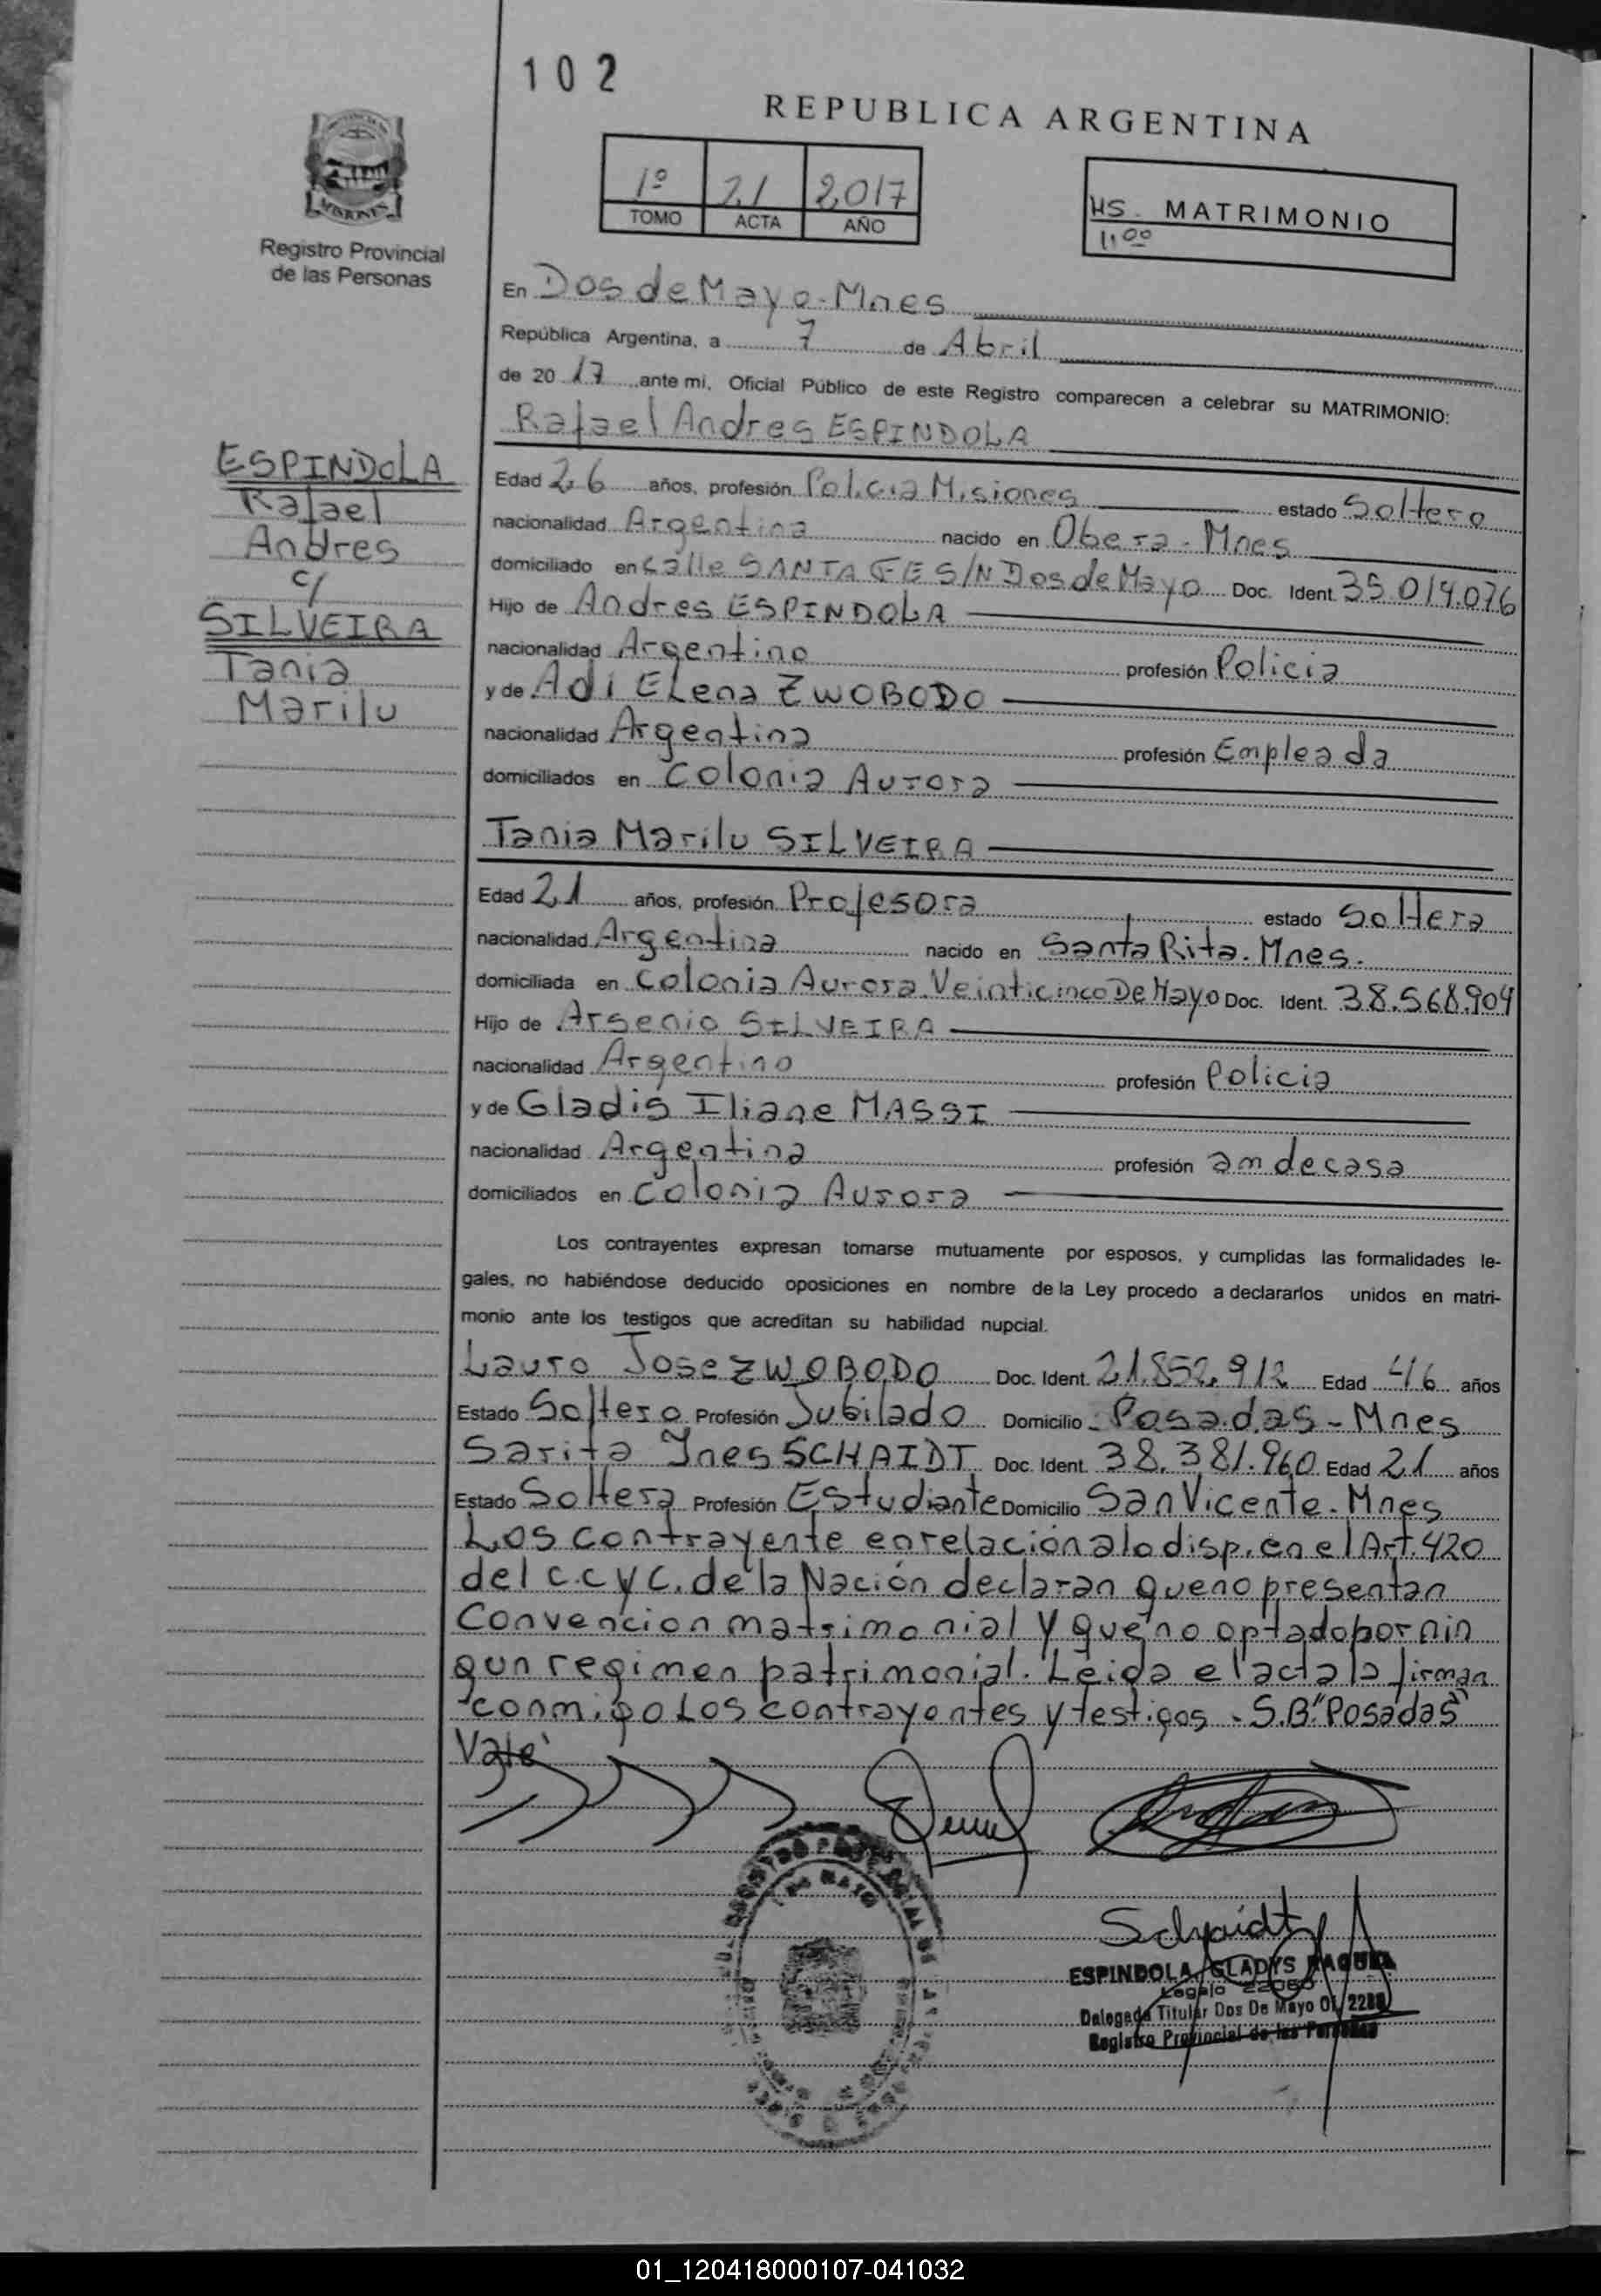 102
REPUBLICA ARGENTINA
MISIONES
Registro Provincial
de las Personas
1º 21 2017
TOMO ACTA AÑO
HS. MATRIMONIO
11:00
En Dos de Mayo - Mnes
República Argentina, a 7 de Abril
de 20 17 ante mi, Oficial Público de este Registro comparecen a celebrar su MATRIMONIO:
Rafael Andres ESPINDOLA
ESPINDOLA
Rafael
Andres
c/
SILVEIRA
Tania
Marilu
Edad 26 años, profesión Policia Misiones estado Soltero
nacionalidad Argentina nacido en Obera - Mnes
domiciliado en Calle SANTA FE S/N Dos de Mayo Doc. Ident. 35.014.076
Hijo de Andres ESPINDOLA
nacionalidad Argentino profesión Policia
y de Adi ELena ZWOBODO
nacionalidad Argentina profesión Empleada
domiciliados en Colonia Aurora
Tania Marilu SILVEIRA
Edad 21 años, profesión Profesora estado Soltera
nacionalidad Argentina nacido en Santa Rita. Mnes.
domiciliada en Colonia Aurora. Veinticinco De Mayo Doc. Ident. 38.568.904
Hijo de Arsenio SILVEIRA
nacionalidad Argentino profesión Policia
y de Gladis Iliane MASSI
nacionalidad Argentina profesión am de casa
domiciliados en Colonia Aurora
Los contrayentes expresan tomarse mutuamente por esposos, y cumplidas las formalidades le-
gales, no habiéndose deducido oposiciones en nombre de la Ley procedo a declararlos unidos en matri-
monio ante los testigos que acreditan su habilidad nupcial.
Lauro Jose ZWOBODO Doc. Ident. 21.852.912 Edad 46 años
Estado Soltero Profesión Jubilado Domicilio Posadas - Mnes
Sarita Ynes SCHAIDT Doc. Ident. 38.381.960 Edad 21 años
Estado Soltera Profesión Estudiante Domicilio San Vicente - Mnes
Los contrayente en relación a lo disp. en el Art. 420
del c.c y C. de la Nación declaran que no presentan
Convención matrimonial y que no optado por nin
gun regimen patrimonial. Leida el acta la firman
conmigo Los contrayentes y testigos - S.B "Posadas"
Vale
Schaidt
ESPINDOLA, GLADYS RAQUEL
Legajo
Delegada Titular Dos De Mayo Of.
Registro Provincial de las Personas
01_120418000107-041032